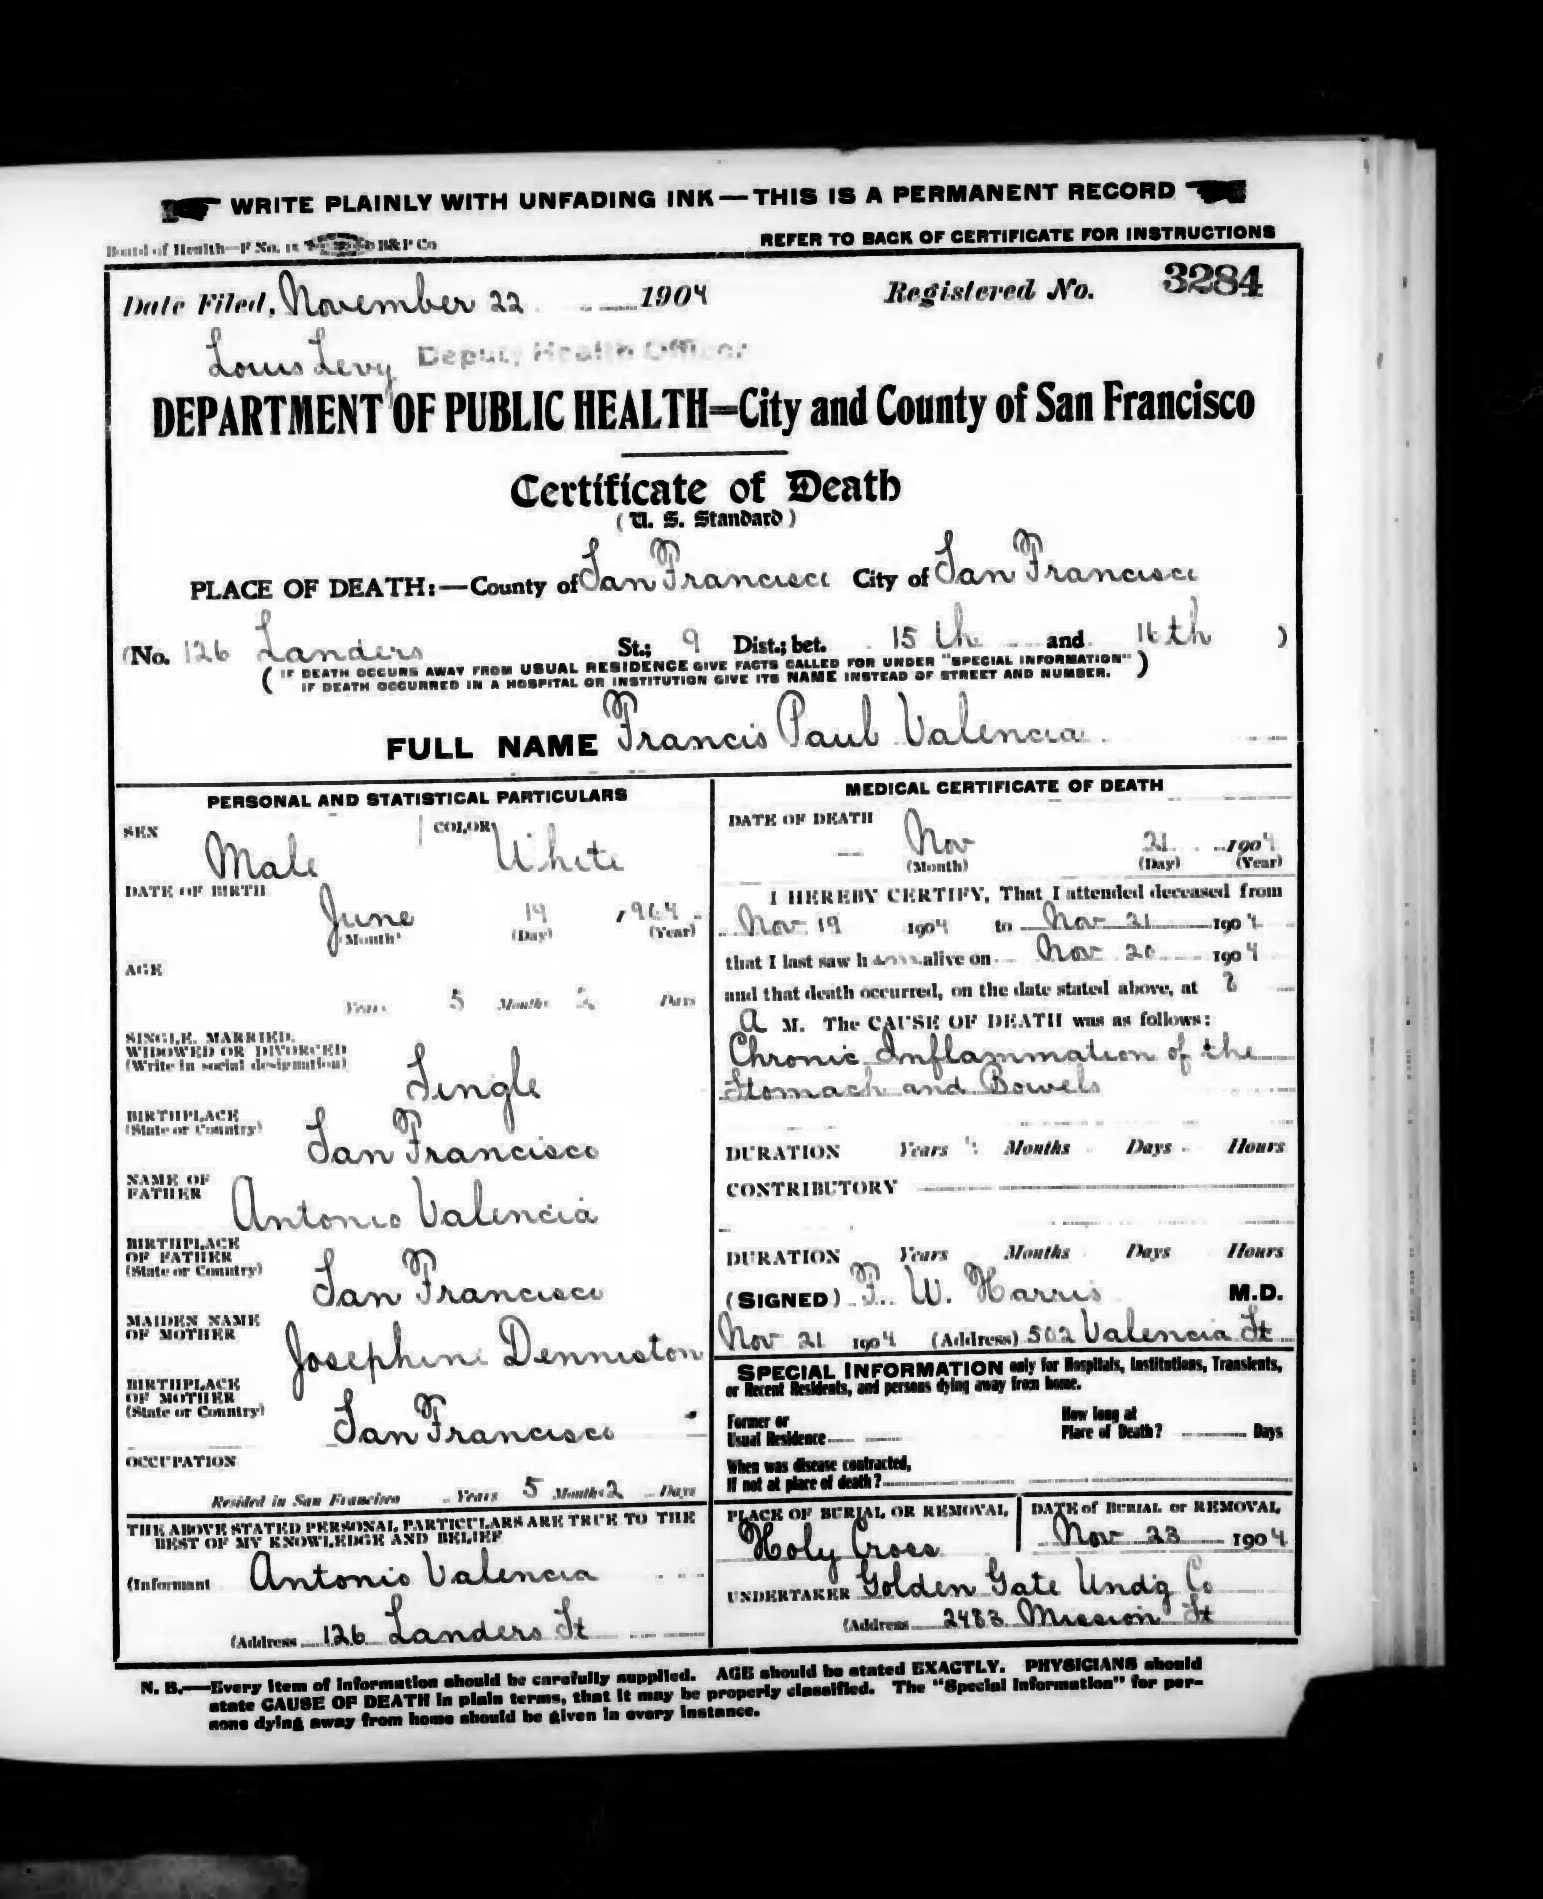 WRITE PLAINLY WITH UNFADING INK—THIS IS A PERMANENT RECORD
Board of Health—F No. 15 B&P Co
REFER TO BACK OF CERTIFICATE FOR INSTRUCTIONS
Date Filed, November 22 1904 Registered No. 3284
Louis Levy Deputy Health Officer
DEPARTMENT OF PUBLIC HEALTH=City and County of San Francisco
Certificate of Death
(U. S. Standard)
PLACE OF DEATH:—County of San Francisco City of San Francisco
(No. 126 Landers St.; 9 Dist.; bet. 15th and 16th )
( IF DEATH OCCURS AWAY FROM USUAL RESIDENCE GIVE FACTS CALLED FOR UNDER "SPECIAL INFORMATION" )
IF DEATH OCCURRED IN A HOSPITAL OR INSTITUTION GIVE ITS NAME INSTEAD OF STREET AND NUMBER.
FULL NAME Francis Paul Valencia
PERSONAL AND STATISTICAL PARTICULARS
SEX Male COLOR White
DATE OF BIRTH
June 19 1904
(Month) (Day) (Year)
AGE
Years 5 Months 2 Days
SINGLE, MARRIED,
WIDOWED OR DIVORCED
(Write in social designation)
Single
BIRTHPLACE
(State or Country)
San Francisco
NAME OF
FATHER
Antonio Valencia
BIRTHPLACE
OF FATHER
(State or Country)
San Francisco
MAIDEN NAME
OF MOTHER
Josephine Denniston
BIRTHPLACE
OF MOTHER
(State or Country)
San Francisco
OCCUPATION
Resided in San Francisco Years 5 Months 2 Days
THE ABOVE STATED PERSONAL PARTICULARS ARE TRUE TO THE
BEST OF MY KNOWLEDGE AND BELIEF
(Informant Antonio Valencia
(Address 126 Landers St
MEDICAL CERTIFICATE OF DEATH
DATE OF DEATH
Nov 21 1904
(Month) (Day) (Year)
I HEREBY CERTIFY, That I attended deceased from
Nov 19 1904 to Nov 21 1904
that I last saw h alive on Nov 20 1904
and that death occurred, on the date stated above, at
A M. The CAUSE OF DEATH was as follows:
Chronic Inflammation of the
Stomach and Bowels
DURATION Years Months Days Hours
CONTRIBUTORY
DURATION Years Months Days Hours
(SIGNED) F. W. Harris M.D.
Nov 21 1904 (Address) 502 Valencia St
SPECIAL INFORMATION only for Hospitals, Institutions, Transients,
or Recent Residents, and persons dying away from home.
Former or
Usual Residence
How long at
Place of Death? Days
When was disease contracted,
If not at place of death?
PLACE OF BURIAL OR REMOVAL
Holy Cross
DATE of BURIAL or REMOVAL
Nov 23 1904
UNDERTAKER Golden Gate Undg Co
(Address 2483 Mission St
N. B.—Every item of information should be carefully supplied. AGE should be stated EXACTLY. PHYSICIANS should
state CAUSE OF DEATH in plain terms, that it may be properly classified. The "Special Information" for per-
sons dying away from home should be given in every instance.